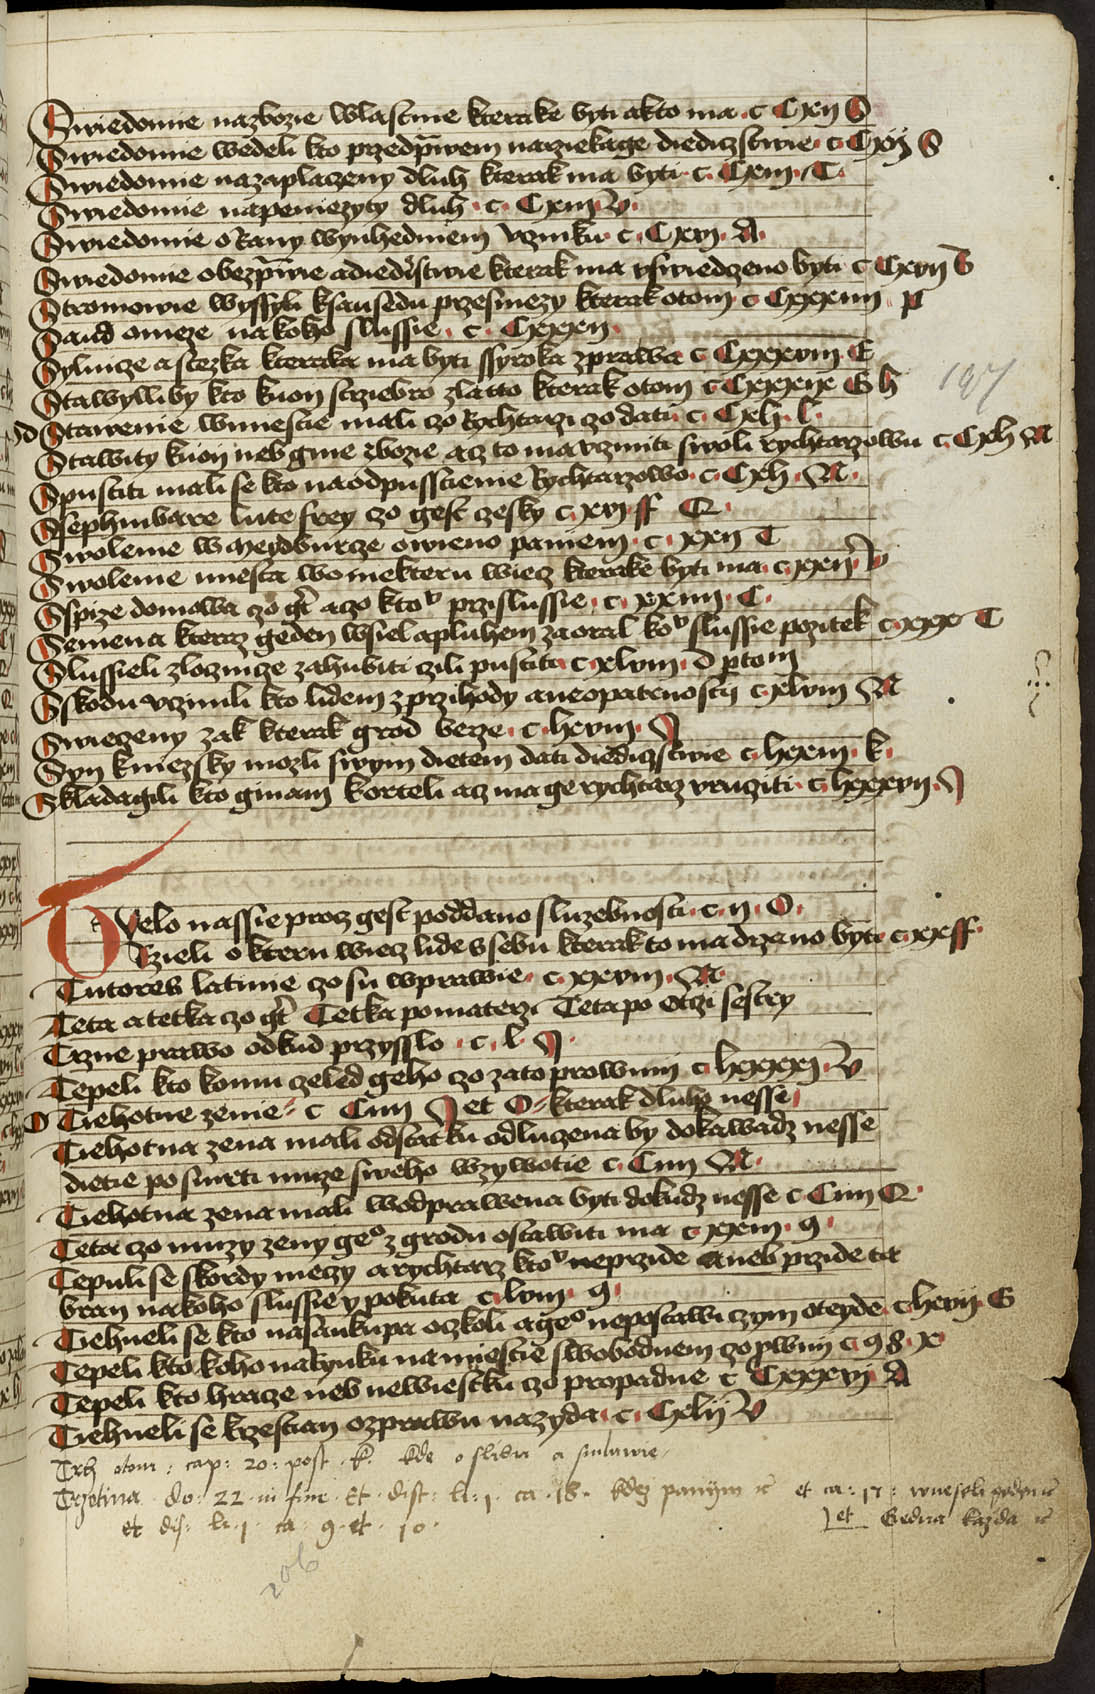 Swiedomie nazbozie wlastnie kterake byti akto ma c Cxii S
Swiedomie wedeli kto przedprwem narziekage diediczstwie c Cxij S
Swiedomie nazaplaczeny dluh kterak ma byti c. Cxiiij T.
Swiedomie napeniezyty dluh c. Cxiii V.
Swiedomie o Rany wynhedniem vrzniku c. Cxvi. A.
Swiedomie obezprwie adiedistwie kterak ma vswiedczeno byti c Cxvii G
Stromowie wyssyli ksausedu przesmezy kterak otom c Cxxxiiii P
Saud omeze nakoho slussie c. Cxxxii
Sylnicze astezka kteraka ma byti ssyroka zprawa c Cxxxviii E
Stawylliby kto kuon strziebro zlatto kterak otom c Cxxxix G h
Strawenie wmiestie mali czo Rychtarzi czo dati c. Cxli. l.
Stawity kuon neb gine zbozie acz to ma vzniti swoli rychtarzowu c. Cxli M
Spustiti mali se kto naodpusstienie Rychtarzowo c. Cxli. M.
Ssephinbare lute frey czo gest czesky c. xvi ff Q.
Swolenie wMeydburcze owieno paniem c. xxii T
Swolenie miesta wo niekteru wiecz kterake byti ma c. xxii V
Sspize domowa czo gt aczo kto prislussie c. xxiiii. C.
Semena kteraz geden wsiel apluhem zaoral ko slussie pozitek c. xxx T
Slussieli zloczincze zahubiti czili pustiti c. xlviii d ptom
Skodu vczinili kto lidem zprzihody aneopatrnosti c. xlviii M
Swieczeny zak kterak grod berze c. lxviii. J
Syn kniezsky mozli swym dietem dati diediczstwie c. lxxiii. k.
Skladagili kto gmam korteli acz ma ge rychtarz vruziti c. lxxxvii. J
Tielo nassie procz gest poddano sluzebnosti c. ii. O.
Trzieli o kteru wiecz lide vsebu kterak to ma drzano byti c. xx ff.
Tutores latinie czo su wprawie c. xxviii. M.
Teta a tetka czo gt Tetka pomaterzi Teta po otczi sestry
Trzne prawo odkud przysslo c. l. J.
Tepeli kto komu czeled geho czo zato prowini c. lxxxxi. V
Tiehotne zenie c Ciiii J et O kterak dluho nesse
Tiehotna zena mali odstatku odluczena by dokawadz nesse
dietie po smrti muze sweho wzywotie c. Ciiii M.
Tiehotna zena mali wodprawena byti dokudz nesse c Ciiii Q.
Teta czo muzy zeny ge z grodu ostawiti ma c. xxiii. 9.
Tepuli se skordy mezy a rychtarz kto neprzide aneb przide ta
bran nakoho slussie y pokuta c. lviii. 9.
Tiehneli se kto nasaukupa oczkoli age nepostawi czym oteyde c. lxvii. G
Tepeli kto koho naRynku namiestie swobodnem czo pwini c. 98. X
Tepeli kto hracze neb newiestku czo propadne c Cxxxvi A
Tiehneli se krzestian ozprawu nazyda c. Cxlij V
Trh otom : cap : 20 : post . k. kde o slibu a smluwie.
Trzotina do : 22 . in fine . et . dist : li . 1 . ca . 18 . kdez et ca : 17 :
et dis : li . 1 . ca : 9 . et . 10 . et Gedna kazda
197
206